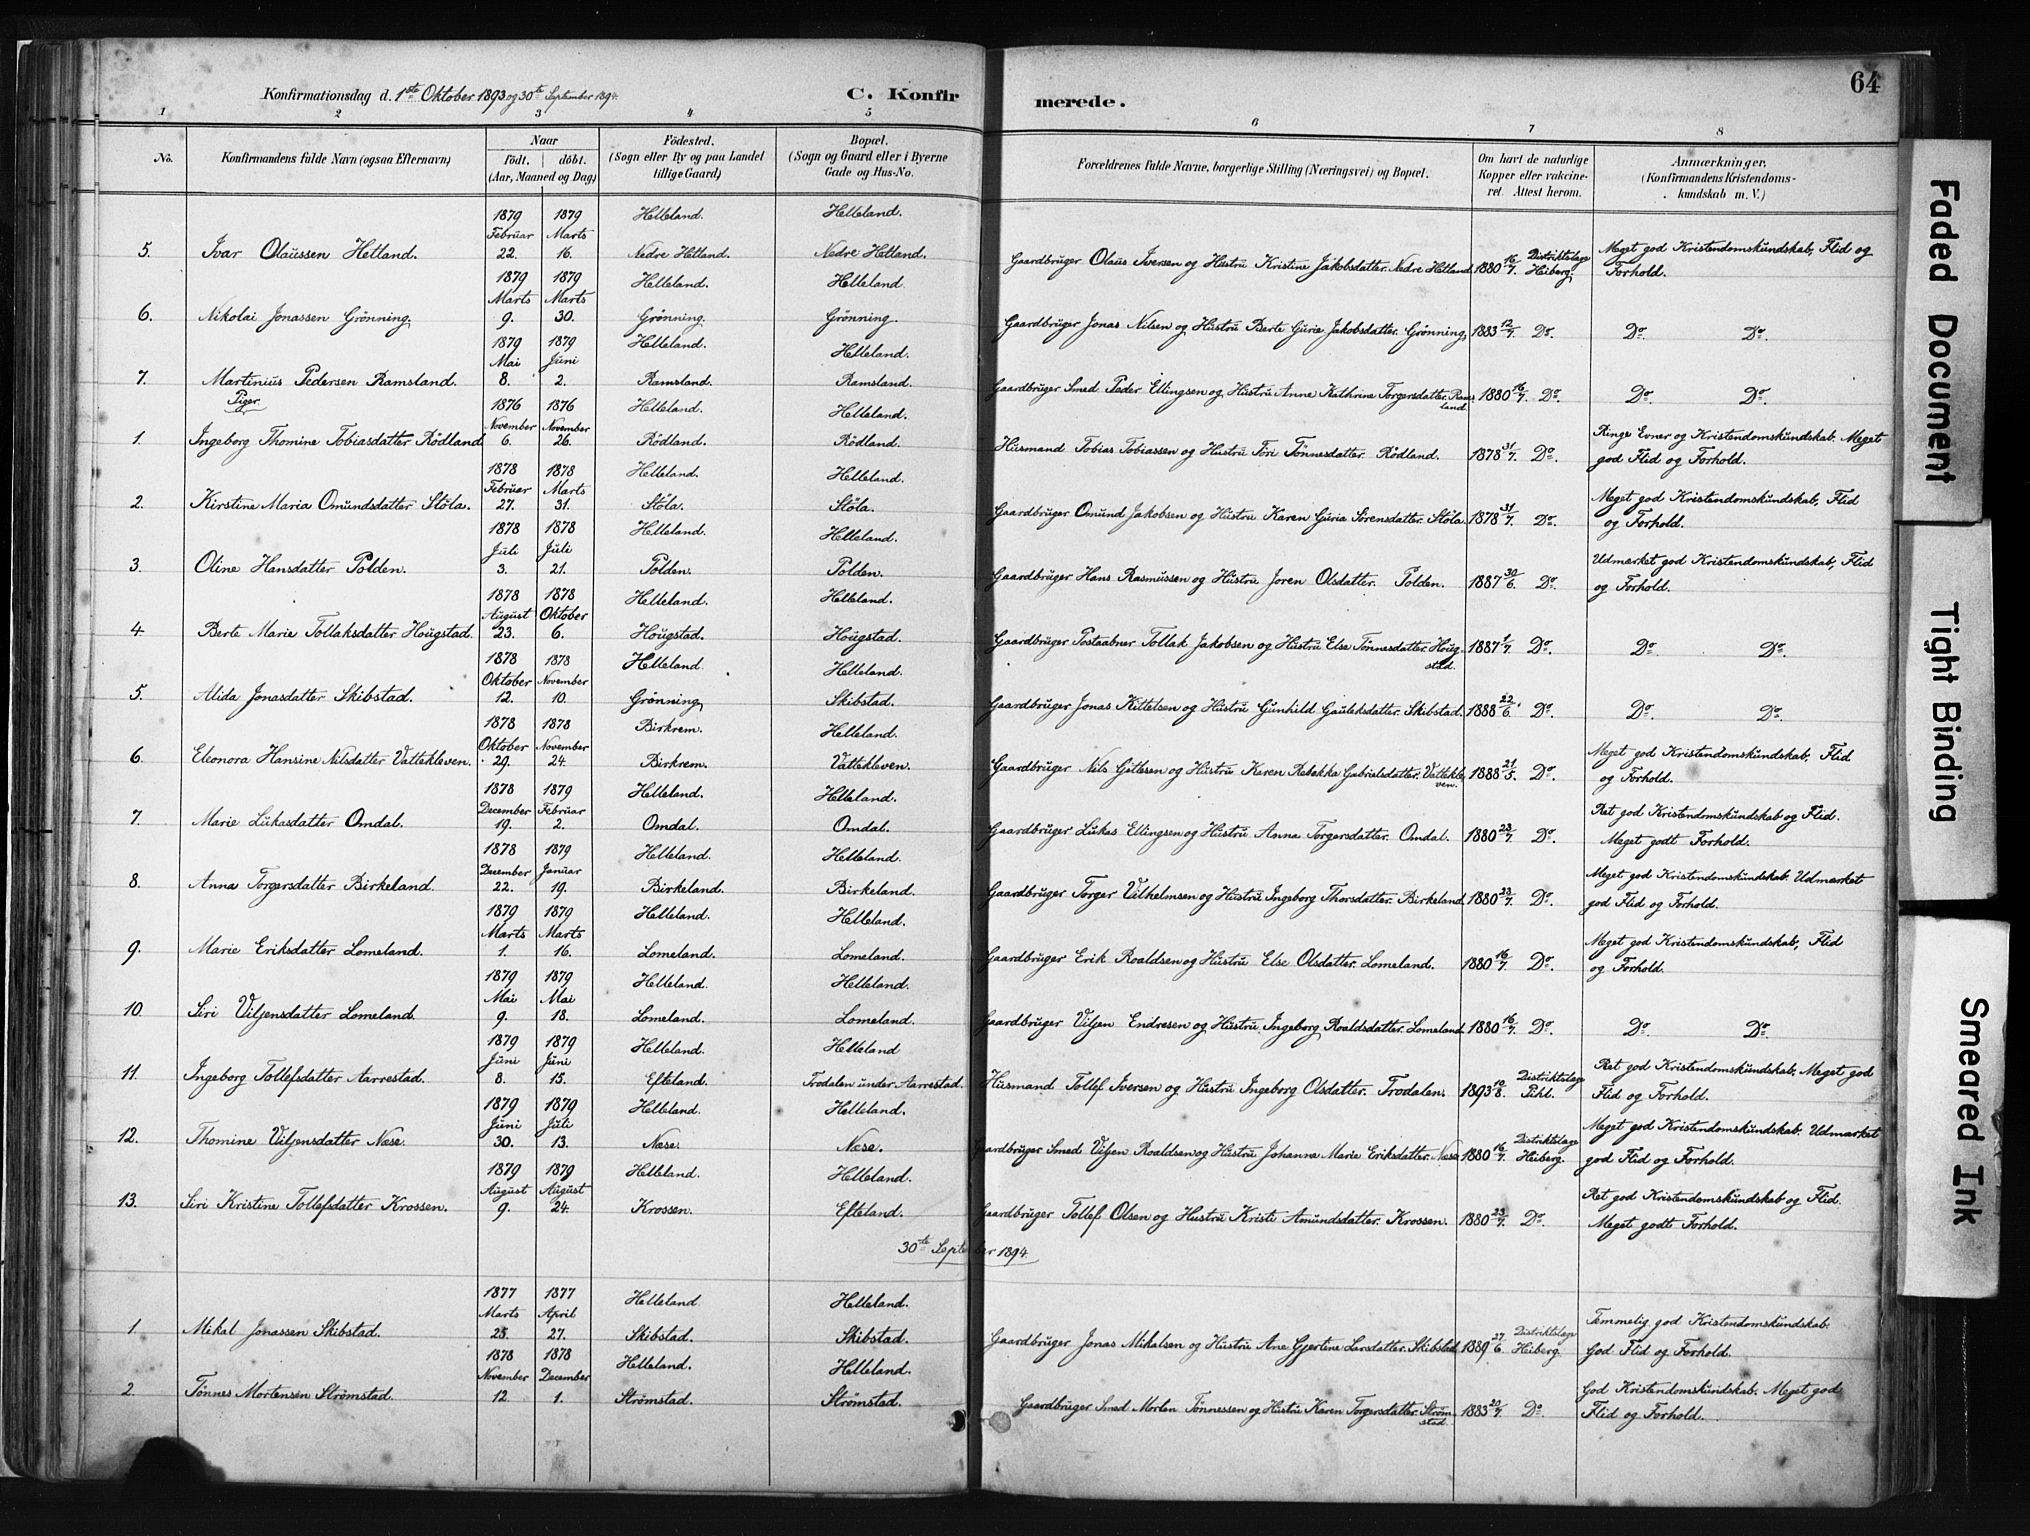 64
Konfirmationsdag d. 1ste Oktober 1893 og 30te September 1894.
C. Konfirmerede.
1 2 3 4 5 6 7 8
No. | Konfirmandens fulde Navn (ogsaa Efternavn) | Naar födt. döbt. (Aar, Maaned og Dag) | Födested. (Sogn eller By og paa Landet tillige Gaard) | Bopæl. (Sogn og Gaard eller i Byerne Gade og Hus-No. | Forældrenes fulde Navne, borgerlige Stilling (Næringsvei) og Bopæl. | Om havt de naturlige Kopper eller vakcineret. Attest herom. | Anmærkninger. (Konfirmandens Kristendomskundskab m. V.)
5. Ivar Olaussen Hetland. 1879 Februar 22. 1879 Marts 16. Helleland. Nedre Hetland. Helleland. Nedre Hetland. Gaardbruger Olaus Iversen og Hustru Kristine Jakobsdatter. Nedre Hetland. 1880 16/7. Distriktslæge Heiberg. Meget god Kristendomskundskab, Flid og Forhold.
6. Nikolai Jonassen Grønning. 1879 Marts 9. 1879 Marts 30. Helleland. Grønning. Helleland. Grønning. Gaardbruger Jonas Nilsen og Hustru Berte Gurie Jakobsdatter. Grønning. 1883 12/7. Do. Do. Do.
7. Martinius Pedersen Ramsland. 1879 Mai 8. 1879 Juni 2. Helleland. Ramsland. Helleland. Ramsland. Gaardbruger Smed Peder Ellingsen og Hustru Anne Kathrine Torgersdatter. Ramsland. 1880 16/7. Do. Do. Do.
Piger.
1. Ingeborg Thomine Tobiasdatter Rödland. 1876 November 6. 1876 November 26. Helleland. Rödland. Helleland. Rödland. Husmand Tobias Tobiassen og Hustru Tori Tønnesdatter. Rödland. 1878 31/7. Do. Ringe Evner og Kristendomskundskab. Meget god Flid og Forhold.
2. Kirstine Maria Omundsdatter Stöla. 1878 Februar 27. 1878 Marts 31. Helleland. Stöla. Helleland. Stöla. Gaardbruger Omund Jakobsen og Hustru Karen Guria Sørensdatter. Stöla. 1878 31/7. Do. Meget god Kristendomskundskab, Flid og Forhold.
3. Oline Hansdatter Polden. 1878 Juli 3. 1878 Juli 21. Helleland. Polden. Helleland. Polden. Gaardbruger Hans Rasmussen og Hustru Joren Olsdatter. Polden. 1887 30/6. Do. Udmærket god Kristendomskundskab, Flid og Forhold.
4. Berte Marie Tollaksdatter Hougstad. 1878 August 23. 1878 Oktober 6. Helleland. Hougstad. Helleland. Hougstad. Gaardbruger Postaabner Tollak Jakobsen og Hustru Else Tønnesdatter. Hougstad. 1887 1/7. Do. Do. Do.
5. Alida Jonasdatter Skibstad. 1878 Oktober 12. 1878 November 10. Helleland. Grønning. Helleland. Skibstad. Gaardbruger Jonas Kittelsen og Hustru Gunhild Gauteksdatter. Skibstad. 1888 22/6. Do. Do. Do.
6. Eleonora Hansine Nilsdatter Vattekleven. 1878 Oktober 29. 1878 November 24. Birkrem. Birkrem. Helleland. Vattekleven. Gaardbruger Nils Gitlesen og Hustru Karen Rebekka Gabrielsdatter. Vattekleven. 1888 21/5. Do. Meget god Kristendomskundskab, Flid og Forhold.
7. Marie Lukasdatter Omdal. 1878 December 19. 1879 Februar 2. Helleland. Omdal. Helleland. Omdal. Gaardbruger Lukas Ellingsen og Hustru Anna Torgersdatter. Omdal. 1880 23/7. Do. Ret god Kristendomskundskab og Flid. Meget godt Forhold.
8. Anna Torgersdatter Birkeland. 1878 December 22. 1879 Januar 19. Helleland. Birkeland. Helleland. Birkeland. Gaardbruger Torger Vilhelmsen og Hustru Ingeborg Thorsdatter. Birkeland. 1880 23/7. Do. Meget god Kristendomskundskab. Udmærket god Flid og Forhold.
9. Marie Eriksdatter Lomeland. 1879 Marts 1. 1879 Marts 16. Helleland. Lomeland. Helleland. Lomeland. Gaardbruger Erik Roaldsen og Hustru Else Olsdatter. Lomeland. 1880 16/7. Do. Meget god Kristendomskundskab, Flid og Forhold.
10. Siri Viljensdatter Lomeland. 1879 Mai 9. 1879 Mai 18. Helleland. Lomeland. Helleland. Lomeland. Gaardbruger Viljen Endresen og Hustru Ingeborg Roaldsdatter. Lomeland. 1880 16/7. Do. Do. Do.
11. Ingeborg Tollefsdatter Aarrestad. 1879 Juni 8. 1879 Juni 15. Helleland. Efteland. Helleland Trodalen under Aarrestad. Husmand Tollef Iversen og Hustru Ingeborg Olsdatter. Trodalen. 1893 10/8. Distriktslæge Pihl. Ret god Kristendomskundskab. Meget god Flid og Forhold.
12. Thomine Viljensdatter Næse. 1879 Juni 30. 1879 Juli 13. Helleland. Næse. Helleland. Næse. Gaardbruger Smed Viljen Roaldsen og Hustru Johanne Marie Eriksdatter. Næse. 1880 16/7. Distriktslæge Heiberg. Meget god Kristendomskundskab. Udmærket god Flid og Forhold.
13. Siri Kristine Tollefsdatter Krossen. 1879 August 9. 1879 August 24. Helleland. Krossen. Helleland. Efteland. Gaardbruger Tollef Olsen og Hustru Kristi Amundsdatter. Krossen. 1880 23/7. Do. Ret god Kristendomskundskab og Flid. Meget godt Forhold.
30te September 1894.
1. Mikal Jonassen Skibstad. 1877 Marts 25. 1877 April 27. Helleland. Skibstad. Helleland. Skibstad. Gaardbruger Jonas Mikalsen og Hustru Ane Gjertine Larsdatter. Skibstad. 1889 27/6. Distriktslæge Heiberg. Temmelig god Kristendomskundskab. God Flid og Forhold.
2. Tønnes Mortensen Strømstad. 1878 November 12. 1878 December 1. Helleland. Strømstad. Helleland. Strømstad. Gaardbruger Smed Morten Tønnessen og Hustru Karen Torgersdatter. Strømstad. 1883 20/7. Do. God Kristendomskundskab. Meget god Flid og Forhold.
Faded Document
Tight Binding
Smeared Ink